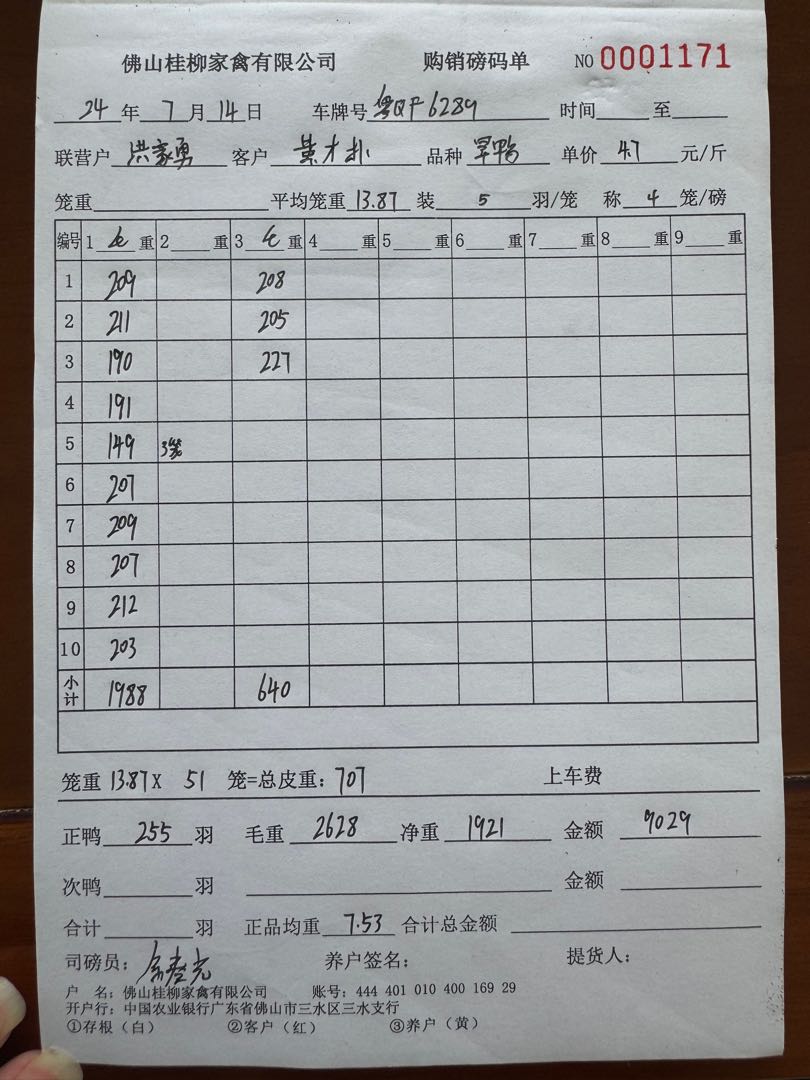 佛山桂柳家禽有限公司 购销磅码单 NO 0001171
24 年 7 月 14 日 车牌号 粤QF6289 时间 至
联营户 洪家勇 客户 品种 旱鸭 单价 4.7 元/斤
笼重 平均笼重 13.87 装 5 羽/笼 称 4 笼/磅
编号 1 毛 重 2 重 3 毛 重 4 重 5 重 6 重 7 重 8 重 9 重
1 209 208
2 211 205
3 190 227
4 191
5 149 3笼
6 207
7 209
8 207
9 212
10 203
小计 1988 640
笼重 13.87 X 51 笼=总皮重: 707 上车费
正鸭 255 羽 毛重 2628 净重 1921 金额 9029
次鸭 羽 金额
合计 羽 正品均重 7.53 合计总金额
司磅员: 养户签名: 提货人:
户 名: 佛山桂柳家禽有限公司 账号: 444 401 010 400 169 29
开户行: 中国农业银行广东省佛山市三水区三水支行
①存根（白） ②客户（红） ③养户（黄）